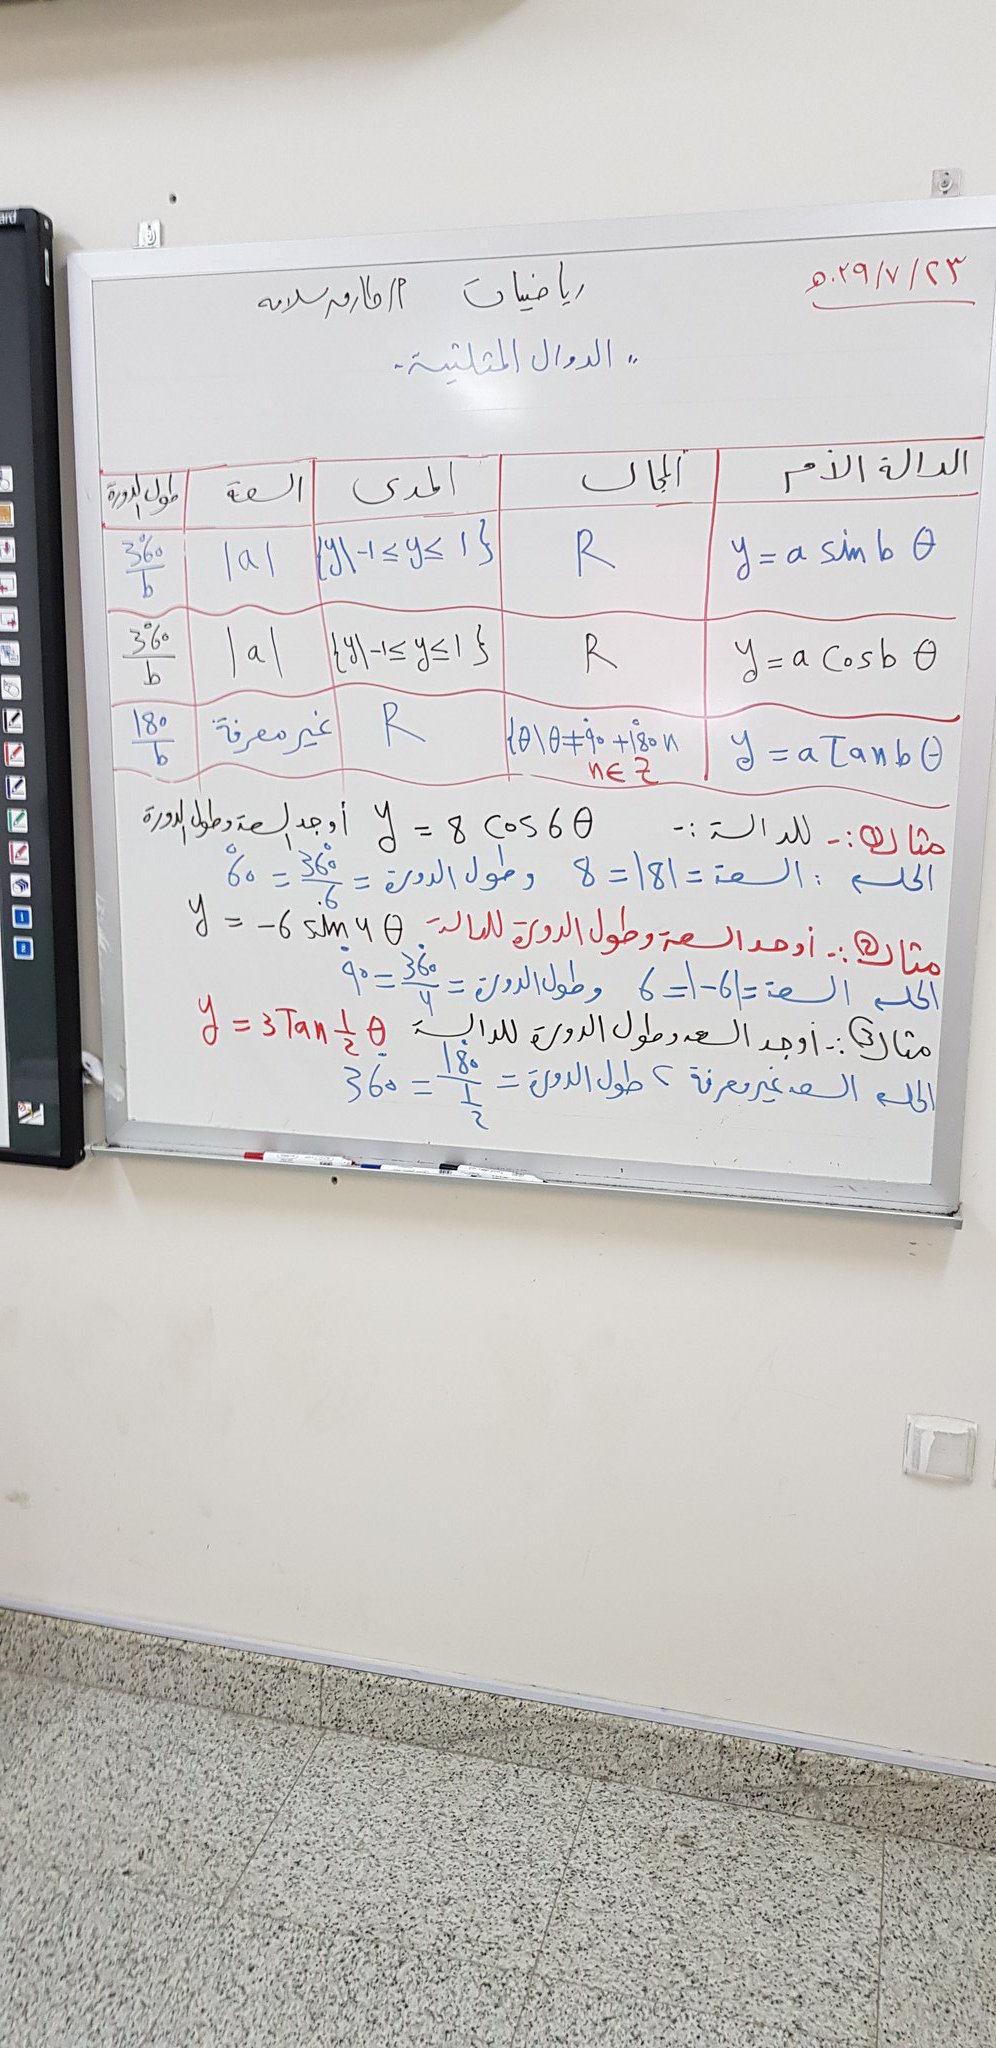 ٢٠٢٩/٧/٢٣
رياضيات م/ طارق سلامه
" الدوال المثلثية -
الدالة الأم | المجال | المدى | السعة | طول الدورة
y = a sin b θ | R | {y\ -1 ≤ y ≤ 1} | |a| | 360°/b
y = a cos b θ | R | {y\ -1 ≤ y ≤ 1} | |a| | 360°/b
y = a Tan b θ | {θ\ θ ≠ 90° + 180° n n ∈ Z | R | غير معرفة | 180/b
مثال①:- للدالة :- y = 8 cos 6θ أوجد السعة وطول الدورة
الحل : السعة = |8| = 8 وطول الدورة = 360°/6 = 60°
مثال②:- أوجد السعة وطول الدورة للدالة- y = -6 sin 4 θ
الحل السعة = |-6| = 6 وطول الدورة = 360°/4 = 90°
مثال③:- أوجد السعه وطول الدورة للدالة y = 3 Tan 1/2 θ
الحل السعه غير معرفة ، طول الدورة = 180°/1/2 = 360°